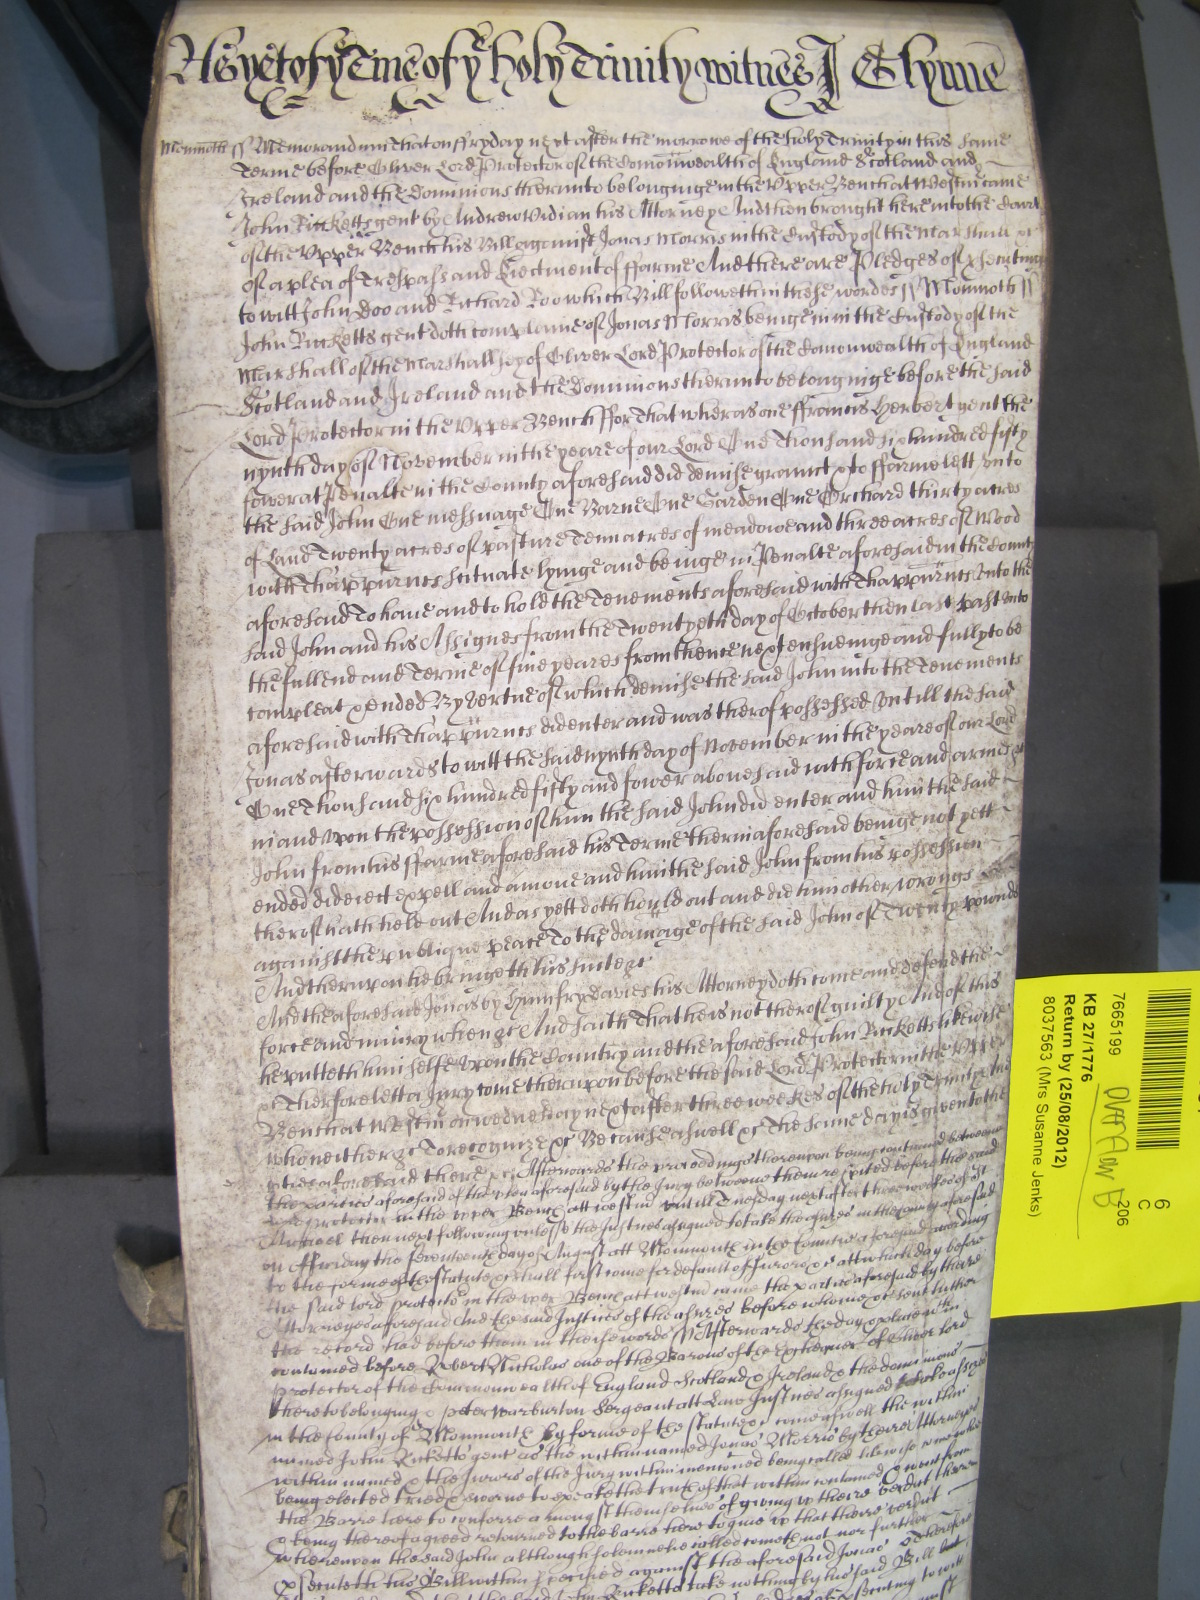 As yet of ye Terme of ye holy Trinity witnes J Glynne
Monmoth ss Memorandum that on ffryday next after the morrowe of the holy Trinity in this same
Terme before Oliver Lord Protector of the Comonwealth of England Scotland and
Ireland and the Dominions therunto belonginge in the Upper Bench at Westm came
John Ricketts gent by Andrew Vidian his Attorney And then brought here into the Court
of the Upper Bench his Bill against Jonas Morris in the Custody of the Marshall &c
of a plea of Trespass and Eiectment of ffarme And there are Pledges of
to witt John Doo and Richard Roo which Bill followeth in these wordes ss Monmoth ss
John Ricketts gent doth complaine of Jonas Morris beinge in the Custody of the
Marshall of the Marshallsey of Oliver Lord Protector of the Comonwealth of England
Scotland and Ireland and the Dominions therunto belonginge before the said
Lord Protector in the Upper Bench ffor that wheras one ffrancis Herbert gent the
nynth day of November in the yeare of our Lord One thousand six hundred fifty
fower at Penalte in the County aforesaid did demise graunt & to ffarme lett unto
the said John One messuage One Barne One Garden One Orchard thirty acres
of Land Twenty acres of pasture Tenn acres of meadowe and three acres of Wood
with thappurtnes scituate lyinge and beinge in Penalte aforesaid in the County
aforesaid To have and to hold the Tenements aforesaid with thappurtnes unto the
said John and his Assignes from the Twentyeth day of October then last past unto
the full end and Terme of five yeares from thence next ensueinge and fully to be
compleat & ended By vertue of which demise the said John into the Tenements
aforesaid with thappurtnes did enter and was therof possessed Untill the said
Jonas afterwards to witt the said nynth day of November in the yeare of our Lord
One thousand six hundred fifty and fower abovesaid with force and armes &c
in and upon the possession of him the said John did enter and him the said
John from his ffarme aforesaid his Terme therin aforesaid beinge not yett
ended did eiect expell and amove and him the said John from his possession
therof hath held out And as yett doth hould out and did him other wrongs
against the publique peace To the damage of the said John of Twenty pounds
And therupon he bringeth his suite &c
And the aforesaid Jonas by Humfry Davies his Attorney doth come and defend the
force and iniury when &c And saith that he is not therof guilty And of this
he putteth himselfe upon the Country and the aforesaid John Ricketts likewise
&c Therfore lett a Jury come therupon before the said Lord Protector in the Upper
Bench at Westm on wednesday next after three weekes of the holy Trinity And
who neither &c To recognize &c Because aswell &c The same day is given to the
p'ties aforesaid there &c Afterwards the proceedings thereupon being continued betweene
the parties aforesaid of the plea aforesaid by the Jury betweene them respited before the said
Lord Protector in the upper Bench att westm untill Tuesday next after three weekes of St
Michael then next following unlesse the Justices assigned to take the assizes in the County aforesaid
on ffriday the seventeenth day of August att Monmouth in the Countie aforesaid according
to the forme of the statute &c shall first come for default of Jurors &c att which day before
the said lord protector in the upper Bench att westm came the parties aforesaid by there
Attorneyes aforesaid And the said Justices of the assizes before whome &c sent hither
the record had before them in theise words ss Afterwards the day & place within
contained before Robert Nicholas one of the Barons of the Exchequer of Oliver lord
protector of the Commonwealth of England Scotland & Ireland & the dominions
thereto belonging & peter Warburton Sergeant att Law Justices assigned to take assizes
in the county of Monmouth by forme of the statute &c came aswell the within
named John Ricketts gent as the within named Jonas Morris by theire Attorneyes
within named & the Jurors of the Jury within mentioned being called likewise come who
being elected tried & sworne to speake the truth of that within contained & went from
the Barre here to conferre amongst themselves of giving up theire verdict there
& being thereof agreed retourned to the barre here to give up that theire verdict
whereupon the said John although solemnelie called cometh not nor further
&secuteth his Bill within specified against the aforesaid Jonas Therefore
the said John Ricketts take nothing by his said Bill but
7665199
KB 27/1776
Return by (25/08/2012)
8037563 (Mrs Susanne Jenks)
206
6
C